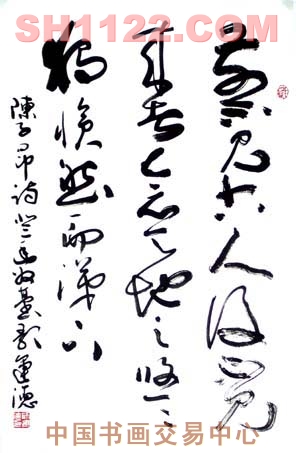 SH1122.COM
前不见古人后不见
来者念天地之悠々
独怆然而涕下
陈子昂诗登幽州台歌 运德
中国书画交易中心